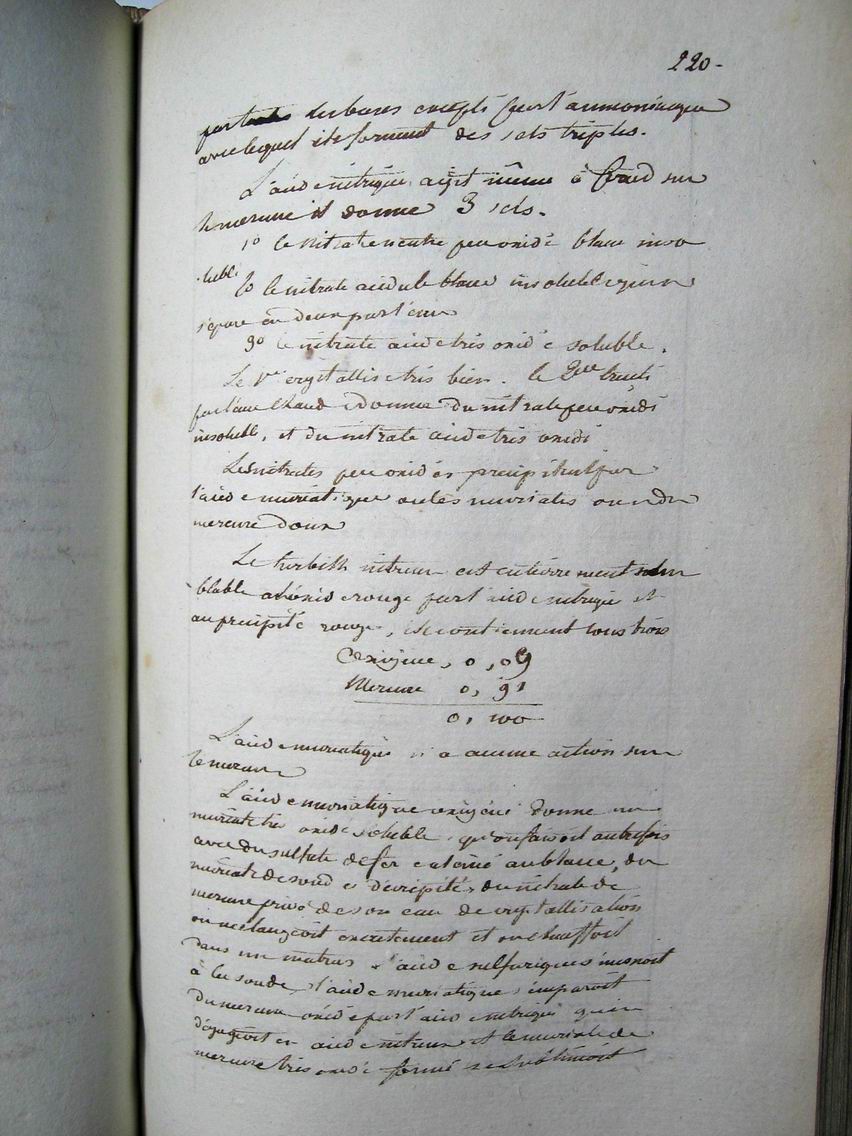 220-
par toutes les bases excepté par l'ammoniaque
avec lequel ils forment des sels triples.
L'acide nitrique agit même à froid sur
le mercure il donne 3 sels.
1º le nitrate neutre peu oxidé blanc inso
-luble
2º le nitrate acidule blanc insoluble qui
se separe en deux par l'eau
3º le nitrate acide très oxidé soluble.
Le 1er crystallise très bien. le 2me traité
par l'eau chaude donne du nitrate peu oxidé
insoluble, et du nitrate acide très oxidé
Les nitrates peu oxidés precipités par
l'acide muriatique ou les muriates
mercure doux
Le turbith nitreux est entièrement sem
blable à l'oxide rouge par l'acide nitrique et
au précipité rouge, ils contiennent tous trois
Oxigène, 0,09
Mercure 0,91
0,100
L'acide muriatique n'a aucune action sur
le mercure
L'acide muriatique oxigéné donne un
muriate très oxidé soluble qu'on faisoit autrefois
avec du sulfate de fer calciné au blanc, du
muriate de soude décrépité, du nitrate de
mercure privé de son eau de crystallisation
on mélangeoit exactement et on chauffoit
dans un matras l'acide sulfurique s'unissoit
à la soude, l'acide muriatique s'emparoit
du mercure oxidé par l'acide nitrique qui
dégageoit en acide nitreux et le muriate de
mercure très oxidé formé se sublimoit